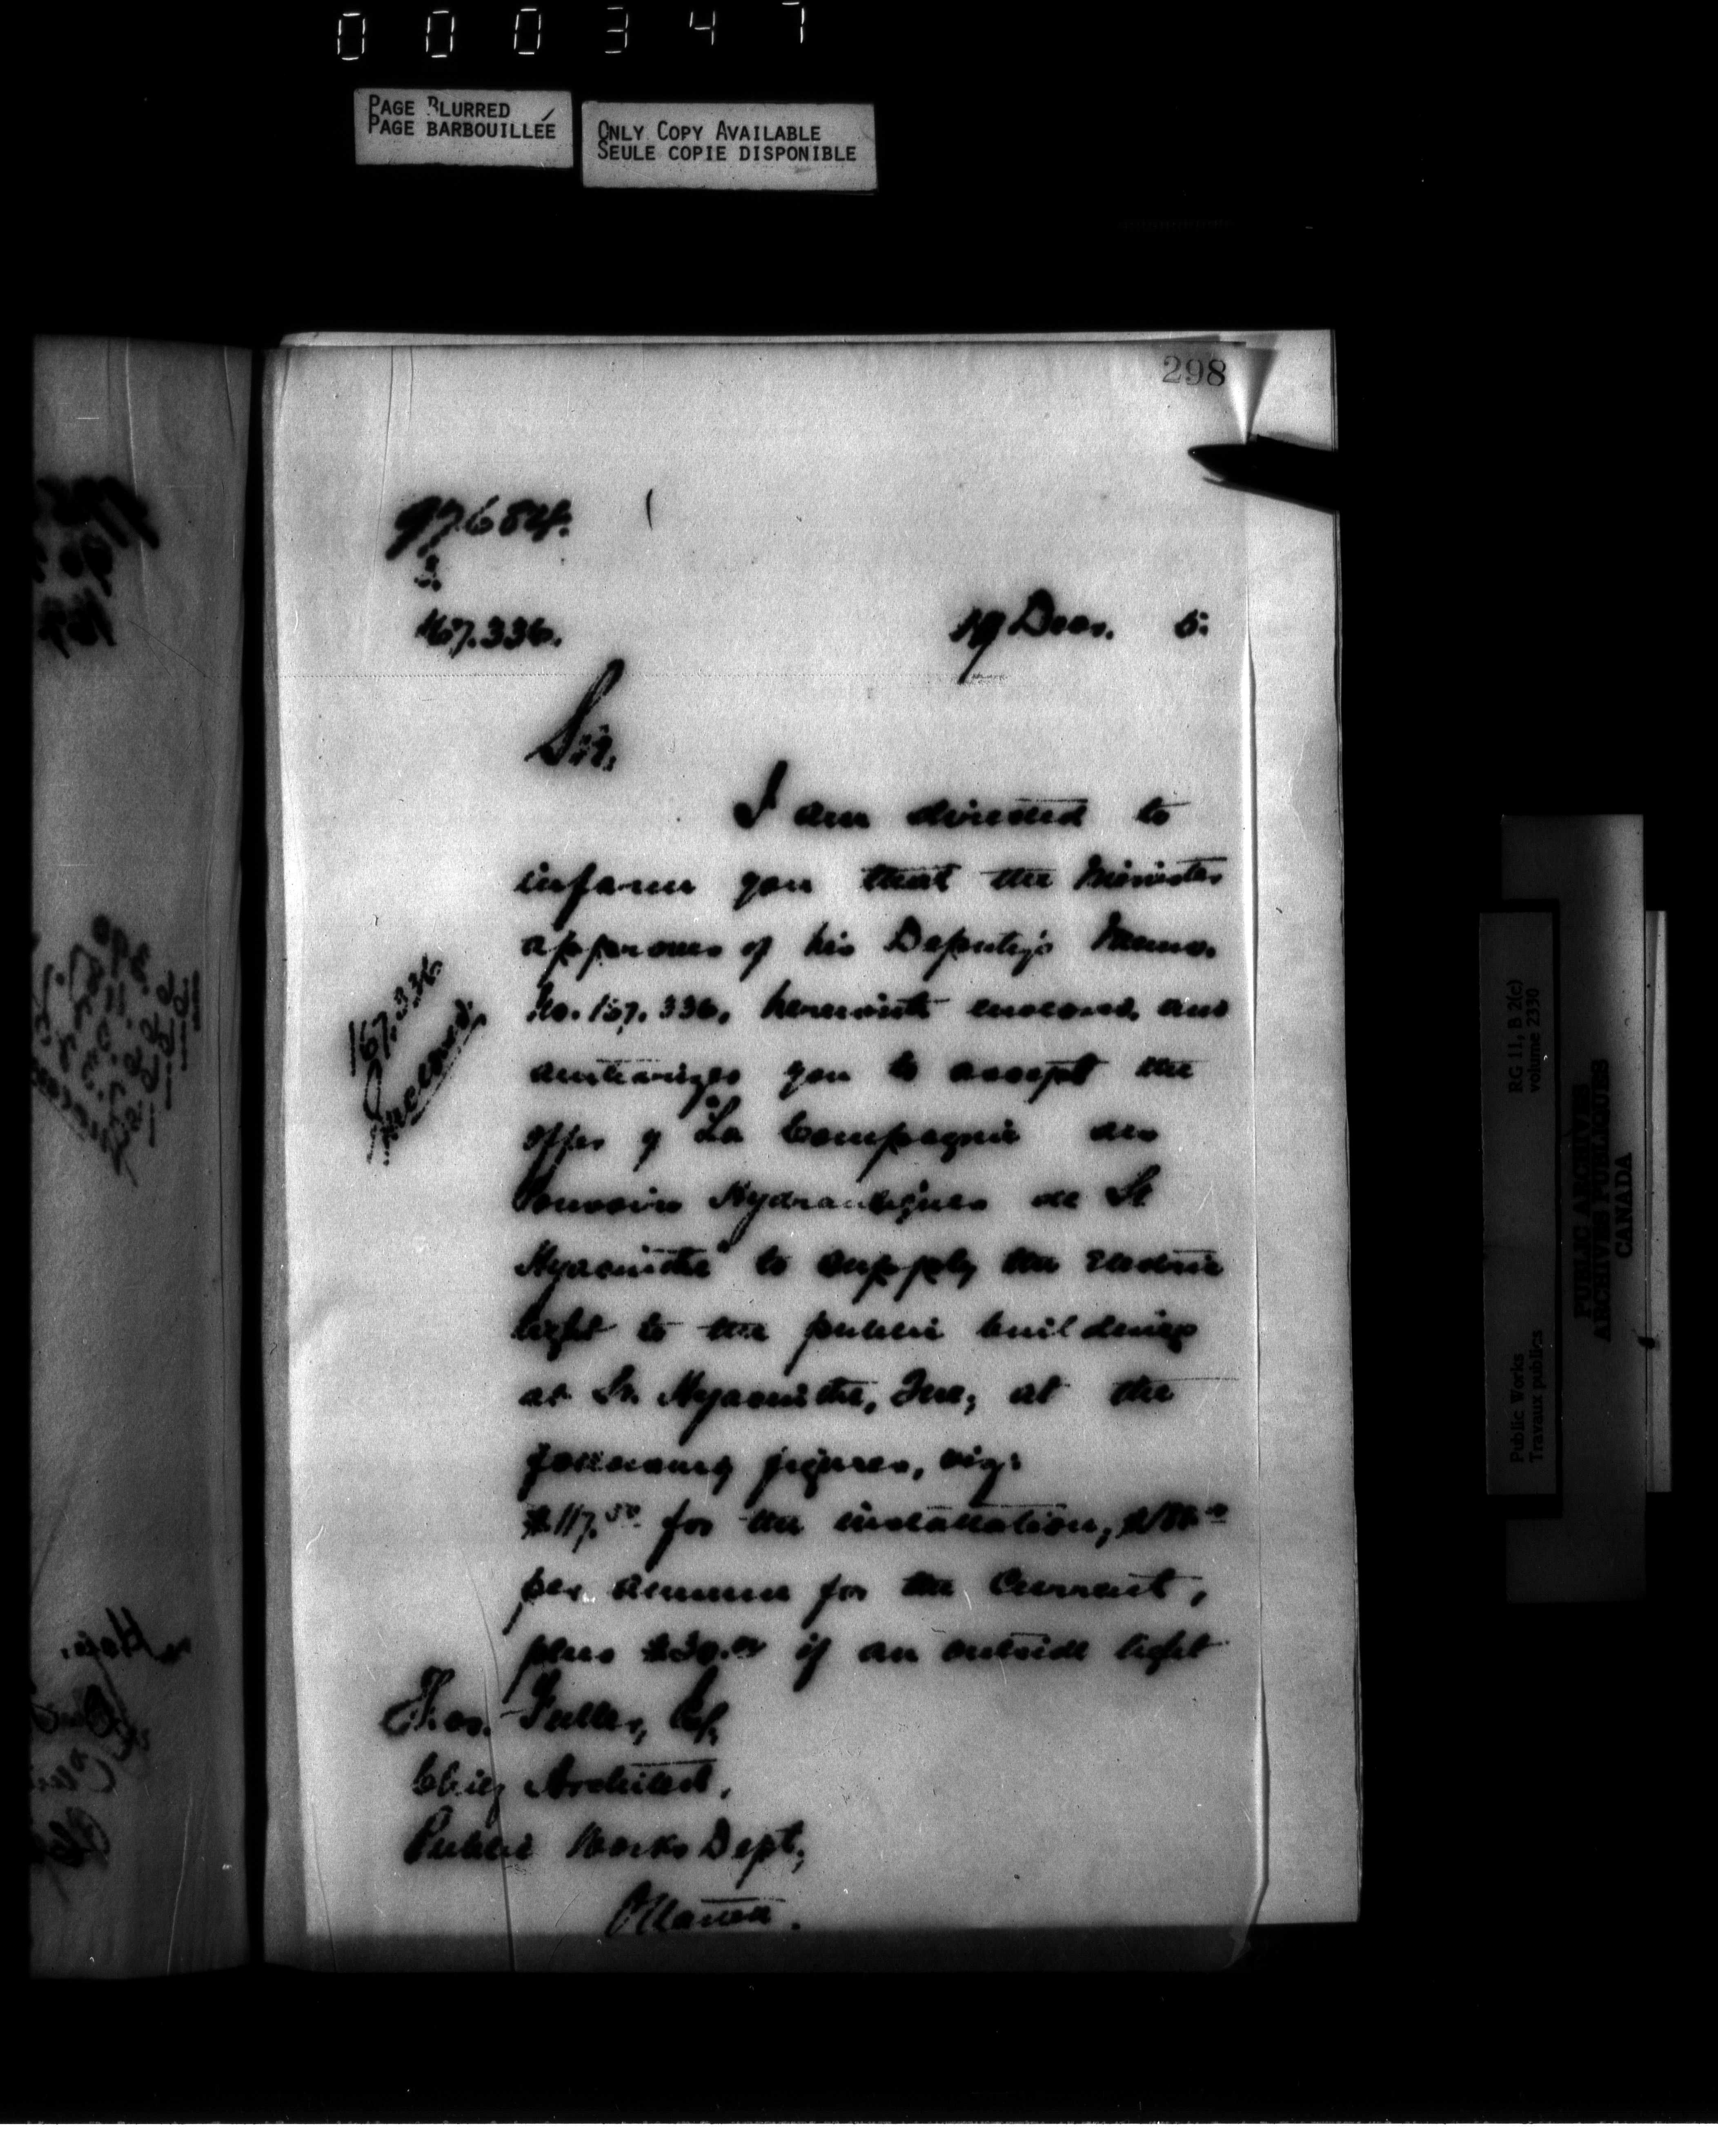 000347
PAGE BLURRED
PAGE BARBOUILLÉE
ONLY COPY AVAILABLE
SEULE COPIE DISPONIBLE
298
97684.
3.
167.336.
19 Decr. 5.
Sir,
I am directed to
inform you that the Minister
approves of his Deputy's Memo.
No. 167.336, herewith enclosed, and
authorizes you to accept the
offer of "La Compagnie des
Pouvoirs Hydrauliques de St.
Hyacinthe" to supply the Electric
light to the public buildings
at St. Hyacinthe, Que; at the
following figures, viz:
$117.50 for the installation,
per annum for the Current,
plus $30.00 if an outside light
167.336
Enclosed.
Thos. Fuller, Esq.
Chief Architect,
Public Works Dept,
Ottawa.
Public Works
Travaux publics
RG 11, B 2(c)
volume 2330
PUBLIC ARCHIVES
ARCHIVES PUBLIQUES
CANADA